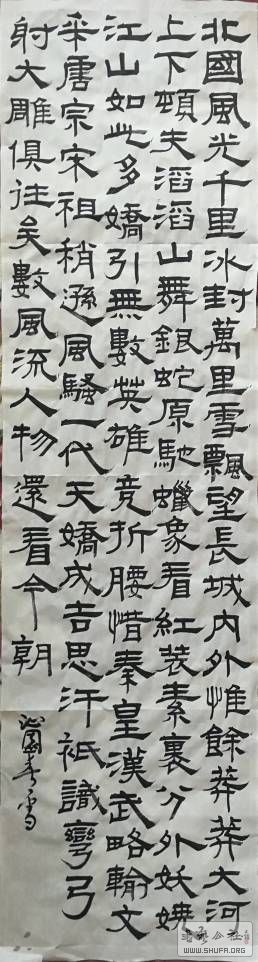 北國風光千里冰封萬里雪飄望長城内外惟餘莽莽大河
上下頓失滔滔山舞銀蛇原馳蠟象看紅裝素裹分外妖嬈
江山如此多嬌引無數英雄竞折腰惜秦皇漢武略輸文
采唐宗宋祖稍遜風騷一代天嬌成吉思汗祇識彎弓
射大雕俱往矣數風流人物還看今朝
沁園春雪
WWW.SHUFA.ORG